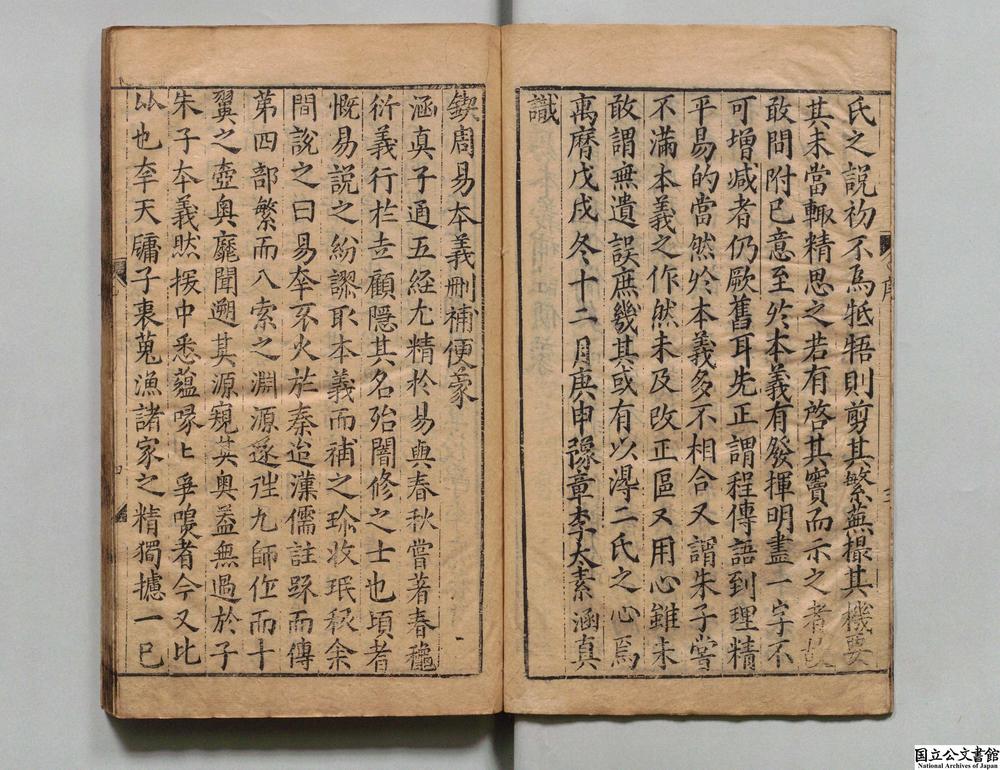 氏之說初不爲牴牾則剪其繁蕪撮其機要
其未當輙精思之若有啓其竇而示之者故
敢問附已意至於本義有發揮明盡一字不
可增减者仍厥舊耳先正謂程傳語到理精
平易的當然於本義多不相合又謂朱子嘗
不滿本義之作然未及改正區又用心雖未
敢謂無遺誤庶幾其或有以淂二氏之心焉
萬曆戊戌冬十二月庚申豫章李太素涵真
識
鍥周易本義刪補便蒙
涵真子通五經尤精於易與春秋嘗著春龝
衍義行於世顧隱其名殆闇修之士也頃者
慨易說之紛謬取本義而補之珎收珉稡余
間說之曰易夲不火於秦迨漢儒註䟽而傳
第四部繁而八索之淵源逐徃九師作而十
翼之壺奥靡聞遡其源窺其奥葢無過於子
朱子夲義然援中悉蘊喙匕爭鳴者今又比
以也夲天牗子衷蒐漁諸家之精獨攄一已
序
三
国立公文書館
National Archives of Japan